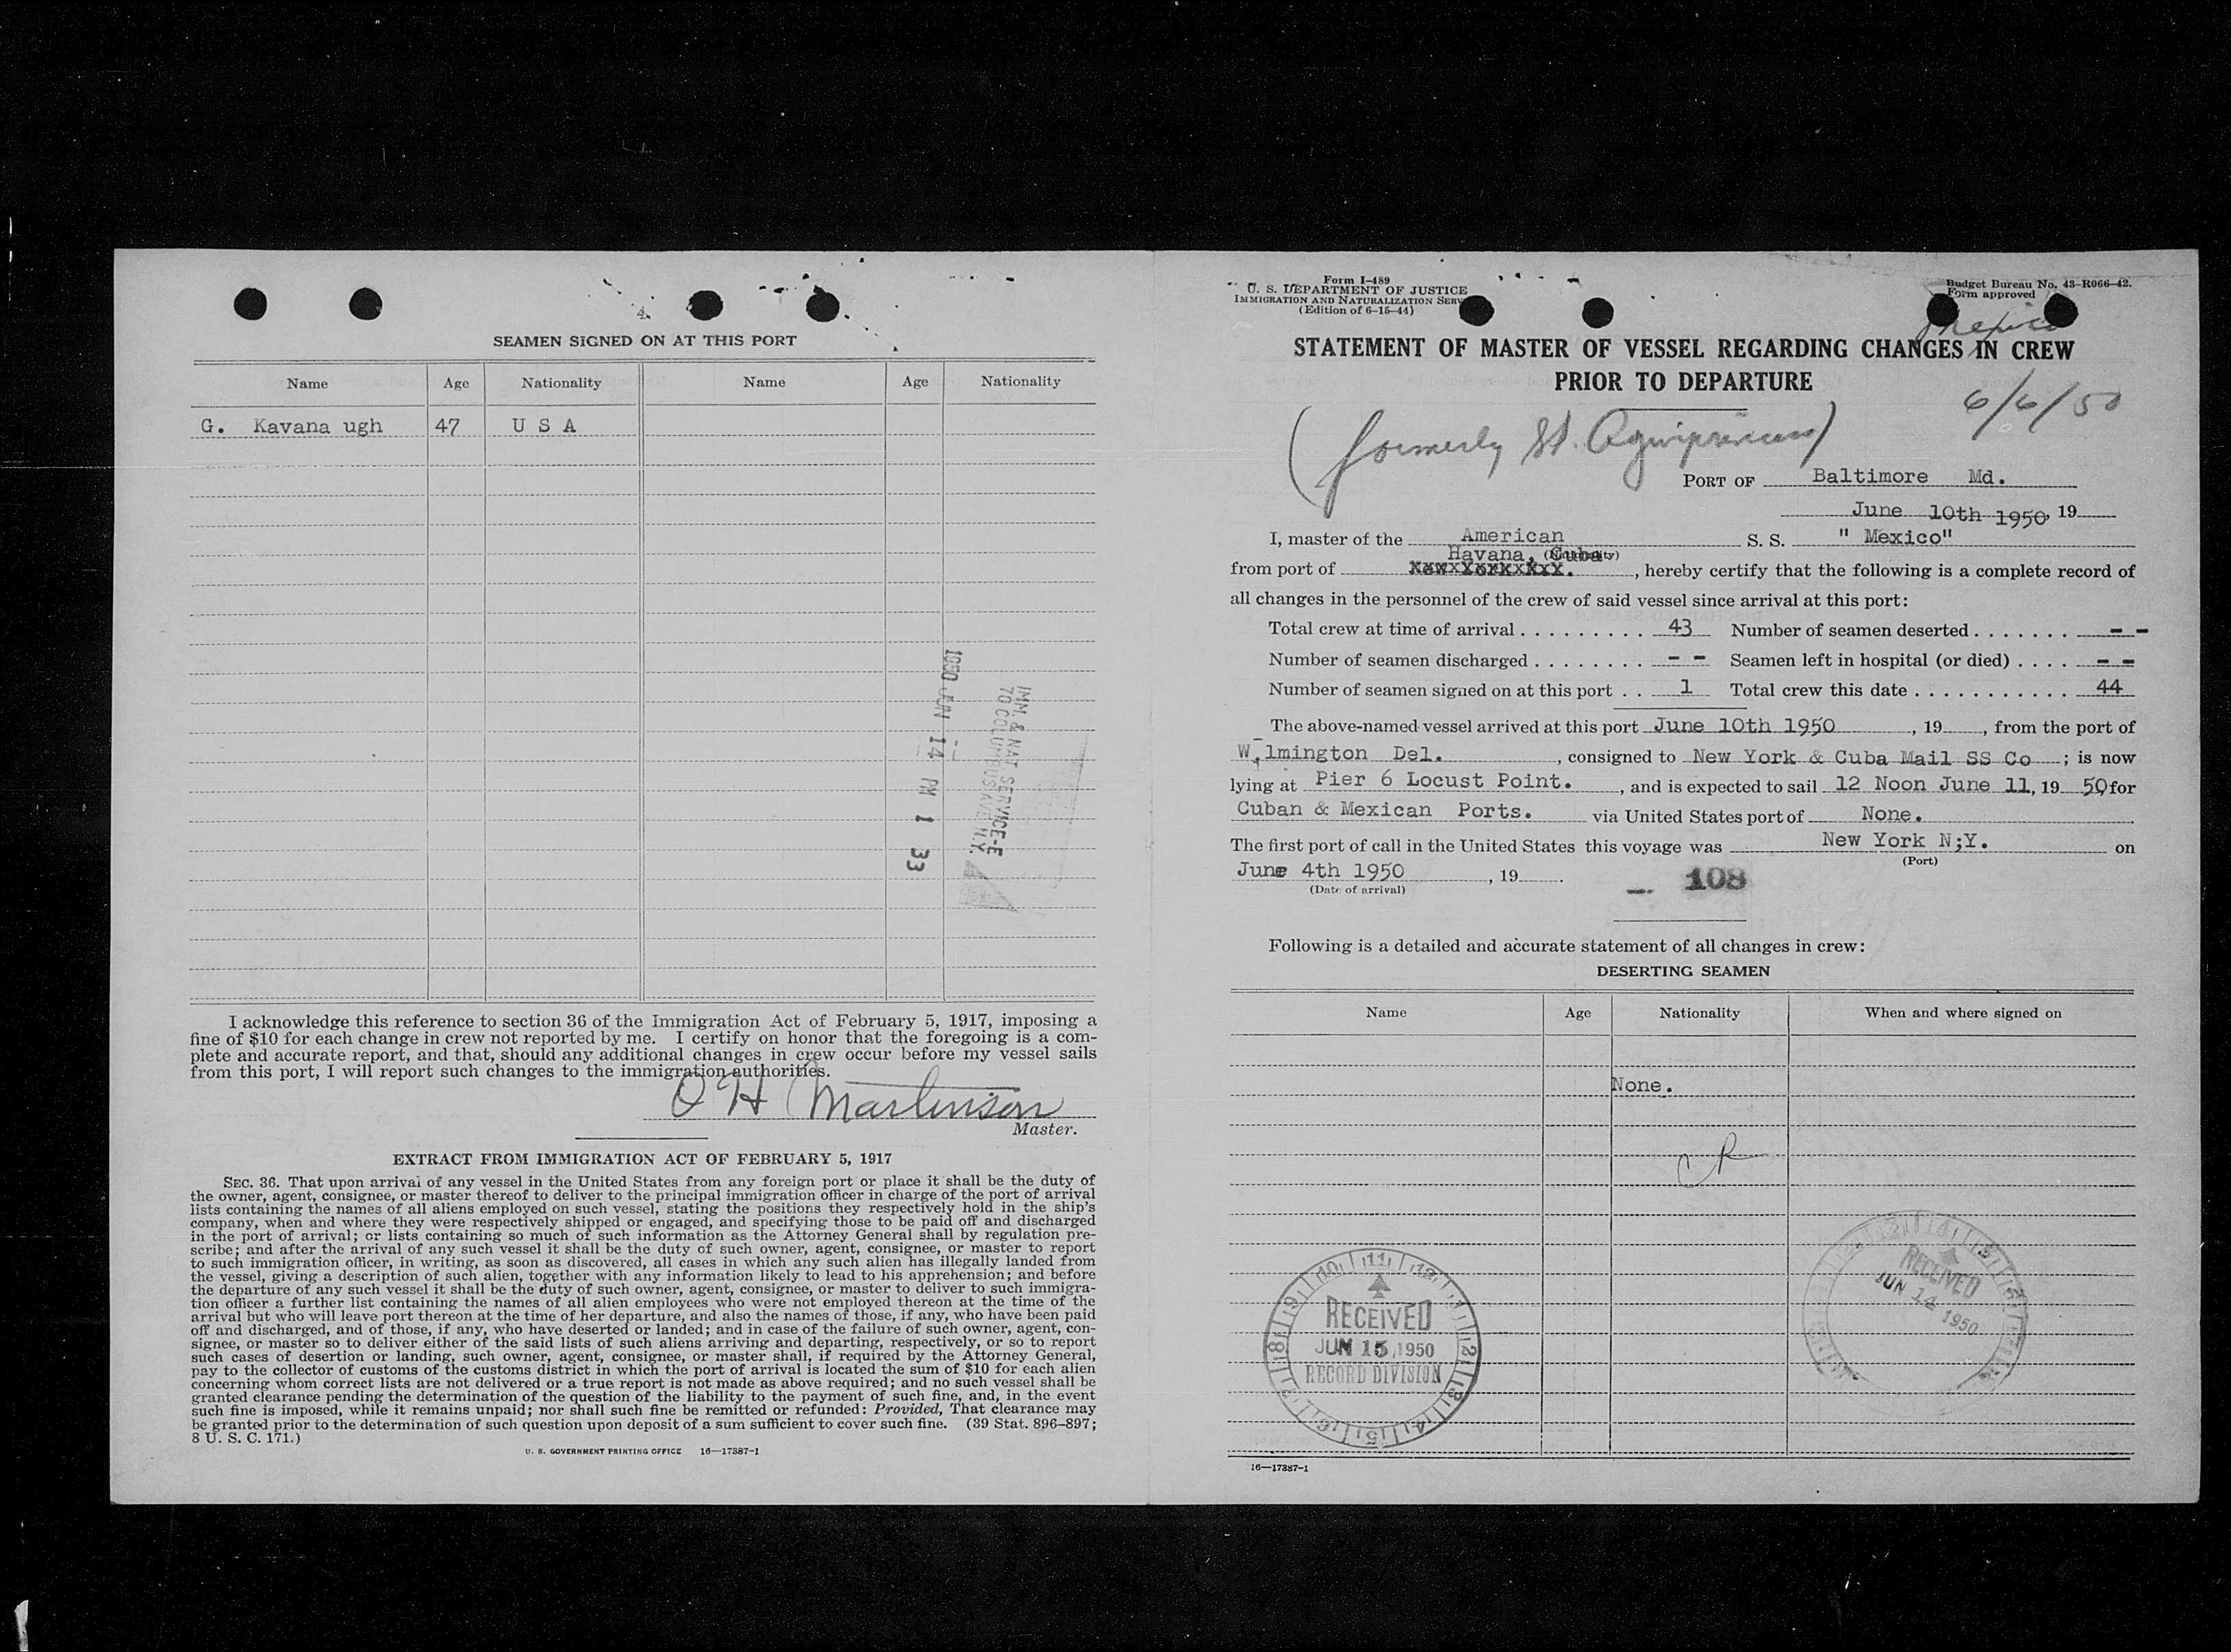 SEAMEN SIGNED ON AT THIS PORT
Name Age Nationality Name Age Nationality
G. Kavana ugh 47 U S A
1950 JUN 14 PM 1 33
IMM. & NAT SERVICE-E
70 COLUMBUS AVE N.Y.
I acknowledge this reference to section 36 of the Immigration Act of February 5, 1917, imposing a
fine of $10 for each change in crew not reported by me. I certify on honor that the foregoing is a com-
plete and accurate report, and that, should any additional changes in crew occur before my vessel sails
from this port, I will report such changes to the immigration authorities.
O H Martinson
Master.
EXTRACT FROM IMMIGRATION ACT OF FEBRUARY 5, 1917
SEC. 36. That upon arrival of any vessel in the United States from any foreign port or place it shall be the duty of
the owner, agent, consignee, or master thereof to deliver to the principal immigration officer in charge of the port of arrival
lists containing the names of all aliens employed on such vessel, stating the positions they respectively hold in the ship's
company, when and where they were respectively shipped or engaged, and specifying those to be paid off and discharged
in the port of arrival; or lists containing so much of such information as the Attorney General shall by regulation pre-
scribe; and after the arrival of any such vessel it shall be the duty of such owner, agent, consignee, or master to report
to such immigration officer, in writing, as soon as discovered, all cases in which any such alien has illegally landed from
the vessel, giving a description of such alien, together with any information likely to lead to his apprehension; and before
the departure of any such vessel it shall be the duty of such owner, agent, consignee, or master to deliver to such immigra-
tion officer a further list containing the names of all alien employees who were not employed thereon at the time of the
arrival but who will leave port thereon at the time of her departure, and also the names of those, if any, who have been paid
off and discharged, and of those, if any, who have deserted or landed; and in case of the failure of such owner, agent, con-
signee, or master so to deliver either of the said lists of such aliens arriving and departing, respectively, or so to report
such cases of desertion or landing, such owner, agent, consignee, or master shall, if required by the Attorney General,
pay to the collector of customs of the customs district in which the port of arrival is located the sum of $10 for each alien
concerning whom correct lists are not delivered or a true report is not made as above required; and no such vessel shall be
granted clearance pending the determination of the question of the liability to the payment of such fine, and, in the event
such fine is imposed, while it remains unpaid; nor shall such fine be remitted or refunded: Provided, That clearance may
be granted prior to the determination of such question upon deposit of a sum sufficient to cover such fine. (39 Stat. 896-897;
8 U. S. C. 171.)
U. S. GOVERNMENT PRINTING OFFICE 16—17387-1
Form I-489
U. S. DEPARTMENT OF JUSTICE
IMMIGRATION AND NATURALIZATION SERV
(Edition of 6-15-44)
Budget Bureau No. 43-R066-42.
Form approved
Mexico
STATEMENT OF MASTER OF VESSEL REGARDING CHANGES IN CREW
PRIOR TO DEPARTURE
6/6/50
(formerly St.
PORT OF Baltimore Md.
June 10th 1950, 19
I, master of the American S. S. " Mexico"
Havana, Cuba (Nationality)
from port of , hereby certify that the following is a complete record of
all changes in the personnel of the crew of said vessel since arrival at this port:
Total crew at time of arrival . . . . . . . . . 43 Number of seamen deserted . . . . . . . - -
Number of seamen discharged . . . . . . . . - - Seamen left in hospital (or died) . . . . - -
Number of seamen signed on at this port . . 1 Total crew this date . . . . . . . . . . . 44
The above-named vessel arrived at this port June 10th 1950 , 19 , from the port of
W.lmington Del. , consigned to New York & Cuba Mail SS Co ; is now
lying at Pier 6 Locust Point. , and is expected to sail 12 Noon June 11, 19 50 for
Cuban & Mexican Ports. via United States port of None.
The first port of call in the United States this voyage was New York N;Y. on
(Port)
June 4th 1950 , 19 .
(Date of arrival)
108
Following is a detailed and accurate statement of all changes in crew:
DESERTING SEAMEN
Name Age Nationality When and where signed on
None.
RECEIVED
JUN 15 1950
RECORD DIVISION
RECEIVED
JUN 14 1950
16—17387-1